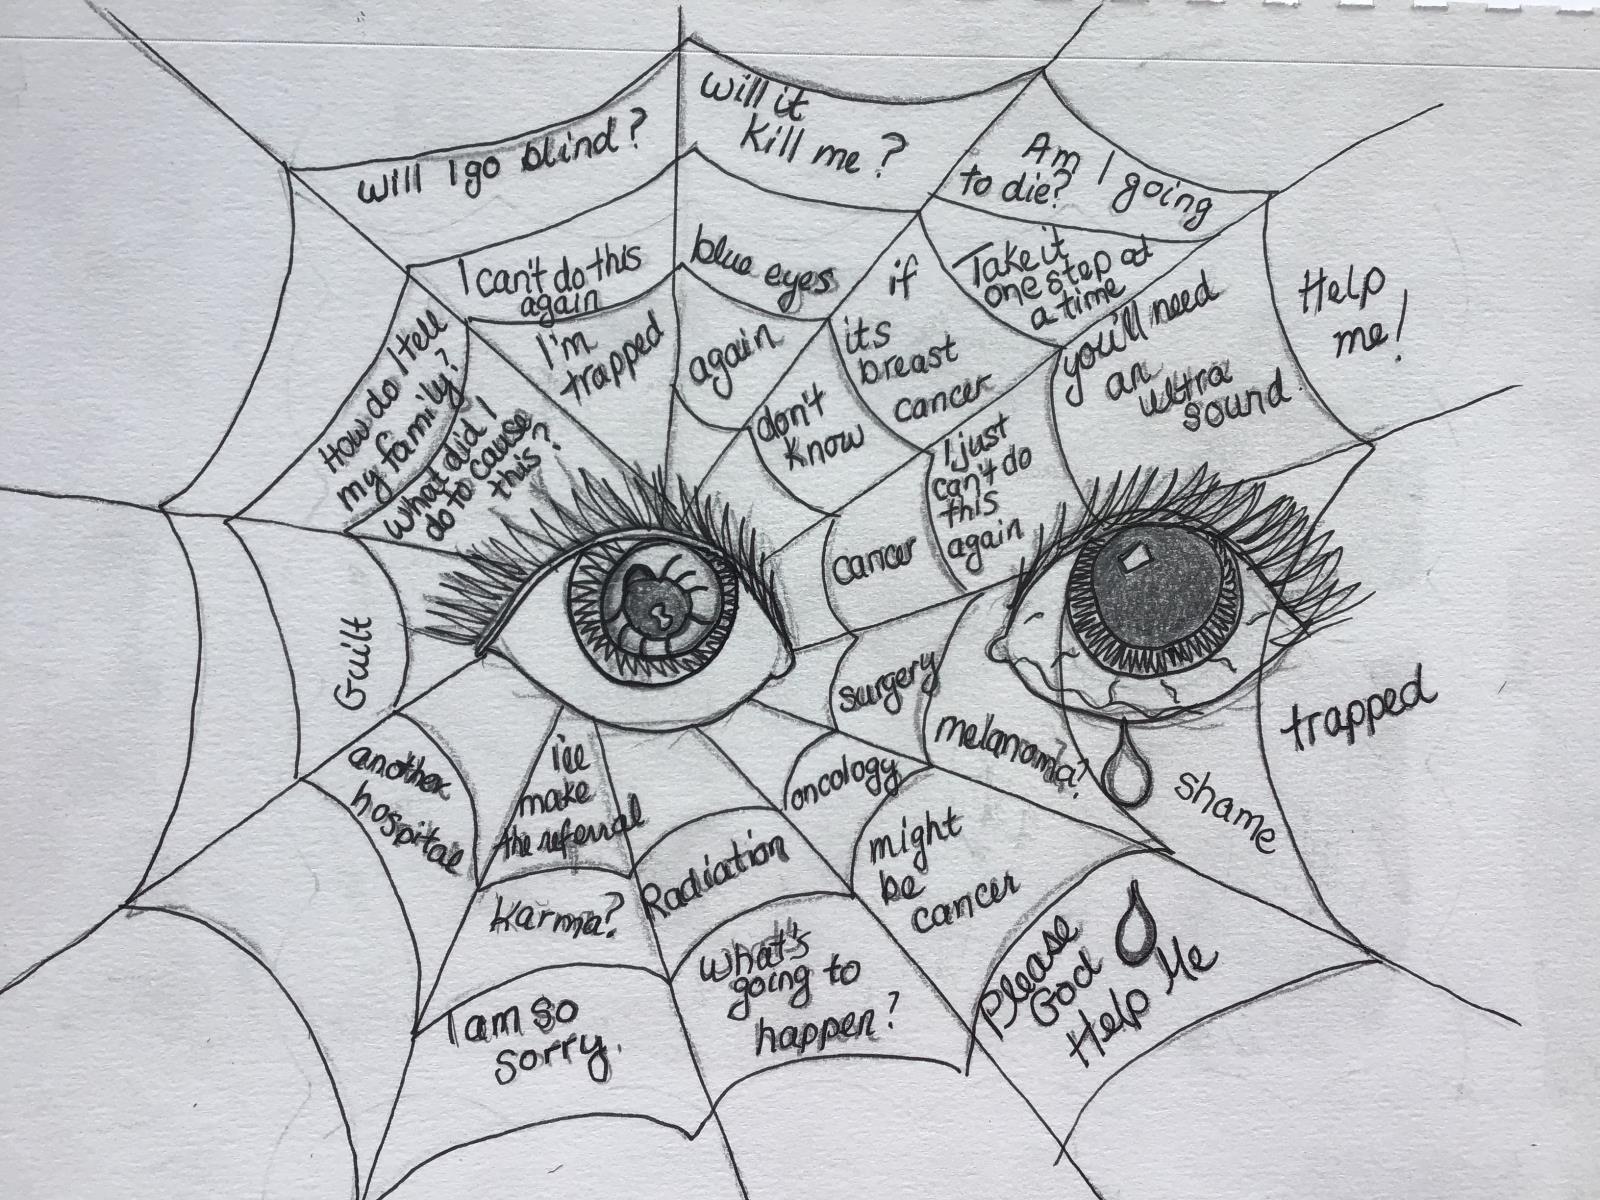 will I go blind?
will it
kill me?
Am I going
to die?
Help
me!
I can't do this
again
blue eyes
if
its
breast
cancer
Take it
one step at
a time
you'll need
an
ultra
sound
How do I tell
my family?
What did I
do to cause
this?
I'm
trapped
again
don't
know
I just
can't do
this
again
cancer
Guilt
surgery
melanoma?
trapped
shame
another
hospital
i'll
make
the referral
oncology
Radiation
might
be
cancer
Karma?
I am so
sorry.
What's
going to
happen?
Please
God
Help Me